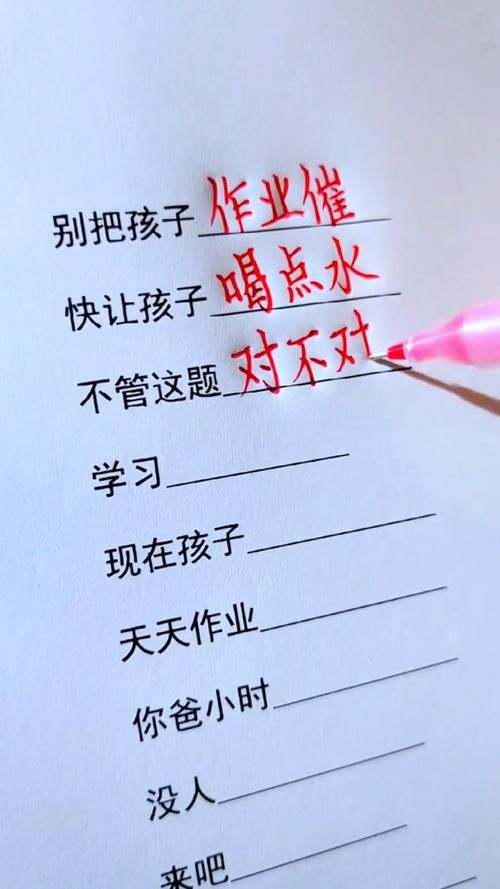 别把孩子作业催
快让孩子喝点水
不管这题对不对
学习
现在孩子
天天作业
你爸小时
没人
来吧